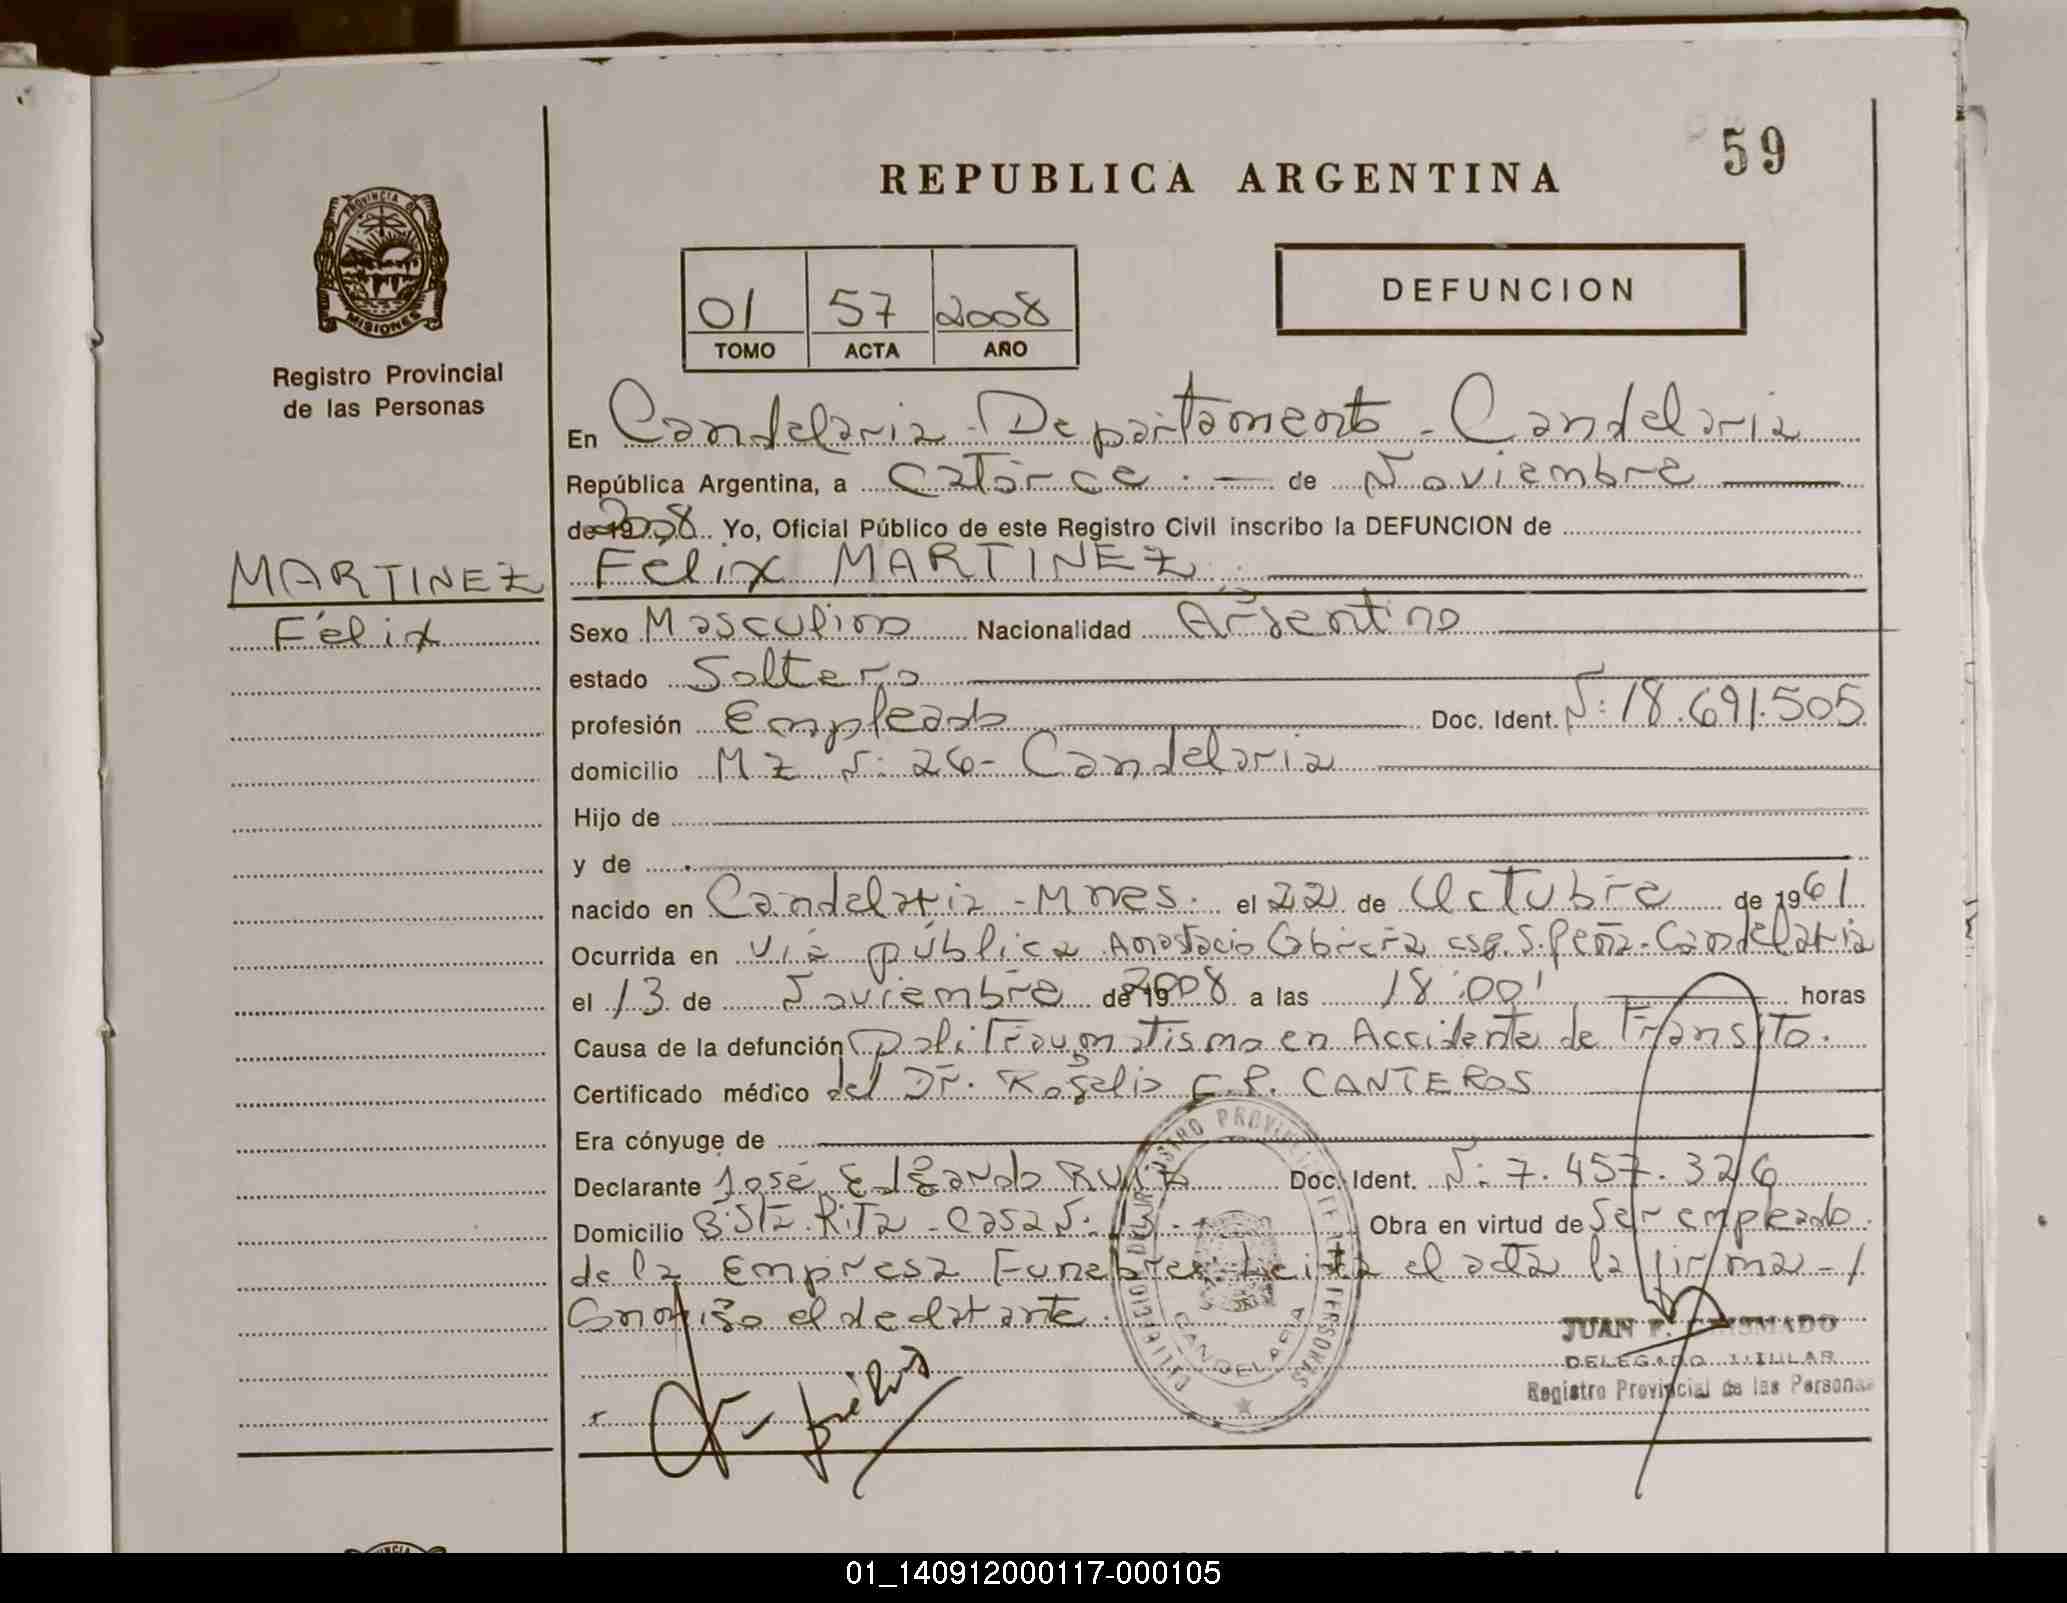 59
REPUBLICA ARGENTINA
PROVINCIA DE
MISIONES
Registro Provincial
de las Personas
DEFUNCION
01 57 2008
TOMO ACTA AÑO
En Candelaria - Departamento - Candelaria
República Argentina, a Catorce . — de Noviembre
de 19 2008 Yo, Oficial Público de este Registro Civil inscribo la DEFUNCION de
MARTINEZ
Félix
Félix MARTINEZ
Sexo Masculino Nacionalidad Argentino
estado Soltero
profesión Empleado Doc. Ident. N: 18.691.505
domicilio MZ N: 26 - Candelaria
Hijo de
y de
nacido en Candelaria - Mnes. el 22 de Octubre de 1961
Ocurrida en Vía pública Anastacio Cabrera esq. S. Peña - Candelaria
el 13 de Noviembre de 19 2008 a las 18:00' horas
Causa de la defunción Politraumatismo en Accidente de Transito.
Certificado médico del Dr. Rogelio CANTEROS
Era cónyuge de
Declarante José Edgardo RUIZ Doc. Ident. N: 7.457.326
Domicilio B: Sta. Rita - Casa N: Obra en virtud de Ser empleado
de la Empresa Funebre. Leida el acta la firma - /
Conmigo el declarante.
José Ruiz
REGISTRO PROVINCIAL DE LAS PERSONAS
CANDELARIA
JUAN F.
DELEGADO TITULAR
Registro Provincial de las Personas
01_140912000117-000105